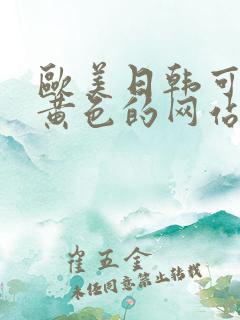 歐美日韩可
黄色的网佔
崔五金
未经同意禁止转载